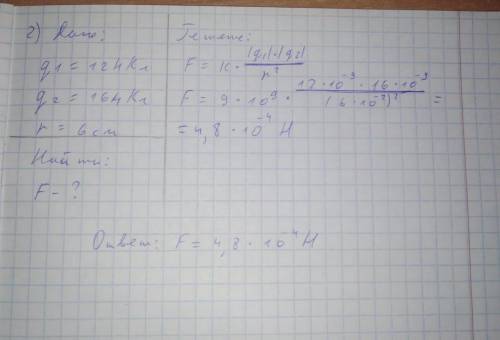 2) Дано:
q1 = 12 нКл
q2 = 16 нКл
r = 6 см
Найти:
F - ?
Решение:
F = k · |q1| · |q2| / r²
F = 9 · 10⁹ · 12 · 10⁻⁹ · 16 · 10⁻⁹ / (6 · 10⁻²)² =
= 4,8 · 10⁻⁴ Н
Ответ: F = 4,8 · 10⁻⁴ Н